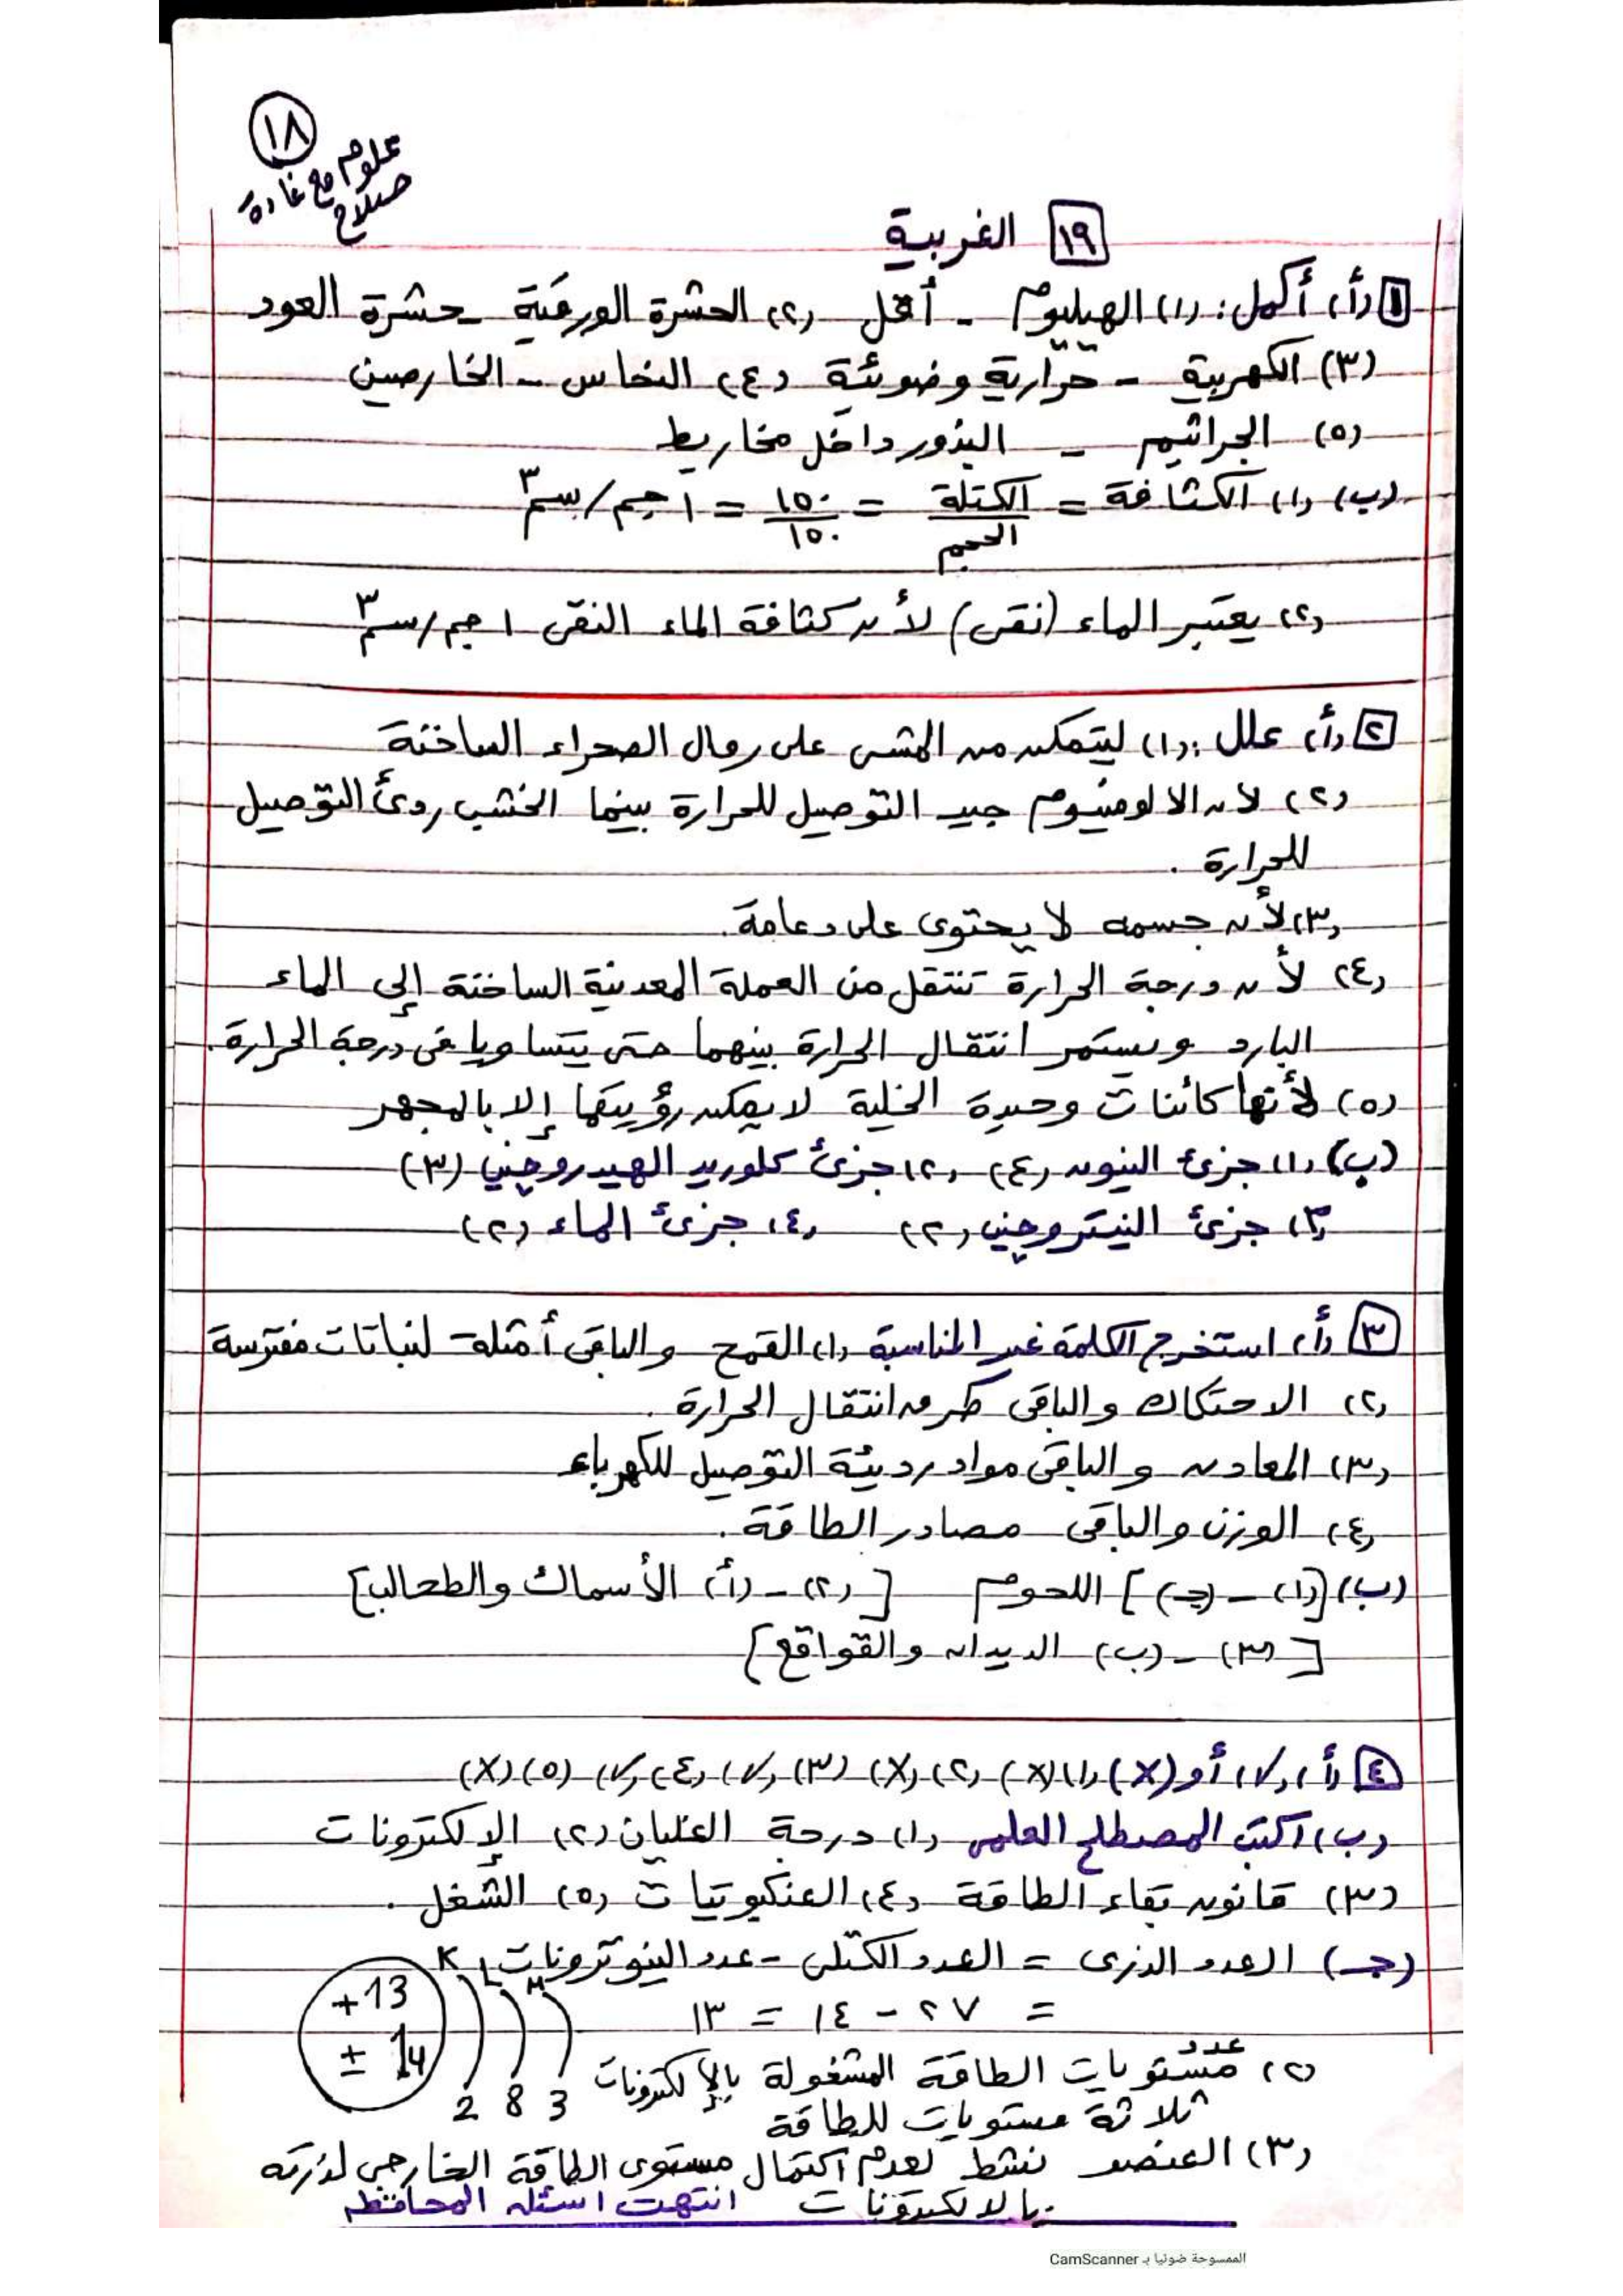 ١٨
علوم مع غادة
صلاح
١٩ الغربية
١ (أ) أكمل: (١) الهيليوم - أقل (٢) الحشرة الورقية - حشرة العود
(٣) الكهربية - حرارية وضوئية (٤) النحاس - الخارصين
(٥) الجراثيم - البذور داخل مخاريط
(ب) (١) الكثافة = الكتلة / الحجم = ١٥٠ / ١٥٠ = ١ جم/سم٣
(٢) يعتبر الماء (نقى) لأن كثافة الماء النقى ١ جم/سم٣
٢ (أ) علل: (١) ليتمكن من المشى على رمال الصحراء الساخنة
(٢) لأن الالومنيوم جيد التوصيل للحرارة بينما الخشب ردئ التوصيل
للحرارة .
(٣) لأن جسمه لا يحتوى على دعامة.
(٤) لأن درجة الحرارة تنتقل من العملة المعدنية الساخنة إلى الماء
البارد ويستمر انتقال الحرارة بينهما حتى يتساويا فى درجة الحرارة.
(٥) لأنها كائنات وحيدة الخلية لا يمكن رؤيتها إلا بالمجهر
(ب) (١) جزئ النيون (٤) (٢) جزئ كلوريد الهيدروچين (٣)
(٣) جزئ النيتروچين (٢) (٤) جزئ الماء (٢)
٣ (أ) استخرج الكلمة غير المناسبة (١) القمح والباقى أمثلة لنباتات مفترسة
(٢) الاحتكاك والباقى طرق انتقال الحرارة .
(٣) المعادن والباقى مواد رديئة التوصيل للكهرباء
(٤) الوزن والباقى مصادر الطاقة .
(ب) [(١) - (جـ)] اللحوم [(٢) - (أ) الأسماك والطحالب]
[(٣) - (ب) الديدان والقواقع]
٤ (أ) (√) أو (X) (١) (X) (٢) (X) (٣) (√) (٤) (√) (٥) (X)
(ب) اكتب المصطلح العلمى (١) درجة الغليان (٢) الإلكترونات
(٣) قانون بقاء الطاقة (٤) العنكبوتيات (٥) الشغل .
(جـ) العدد الذرى = العدد الكتلى - عدد النيوترونات
= ٢٧ - ١٤ = ١٣
K L M
+13
± 14
2 8 3
(٢) عدد مستويات الطاقة المشغولة بالإلكترونات
ثلاثة مستويات للطاقة
(٣) العنصر نشط لعدم اكتمال مستوى الطاقة الخارجى لذرته
بالالكترونات انتهت اسئلة المحافظه
الممسوحة ضوئيا بـ CamScanner